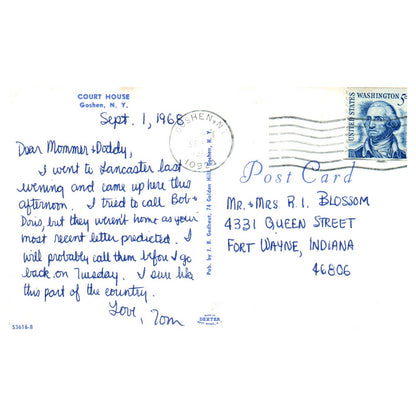 COURT HOUSE
Goshen, N. Y.
Sept. 1, 1968
Dear Mommer & Daddy,
I went to Lancaster last
evening and came up here this
afternoon. I tried to call Bob &
Doris, but they weren't home as your
most recent letter predicted. I
will probably call them before I go
back on Tuesday. I sure like
this part of the country.
Love, Tom
53616-B
Pub. by J. R. Goshen, N. Y.
DEXTER
GOSHEN N.Y.
10924
UNITED STATES
WASHINGTON 5¢
Post Card
MR. & MRS R. I. BLOSSOM
4331 QUEEN STREET
FORT WAYNE, INDIANA
46806